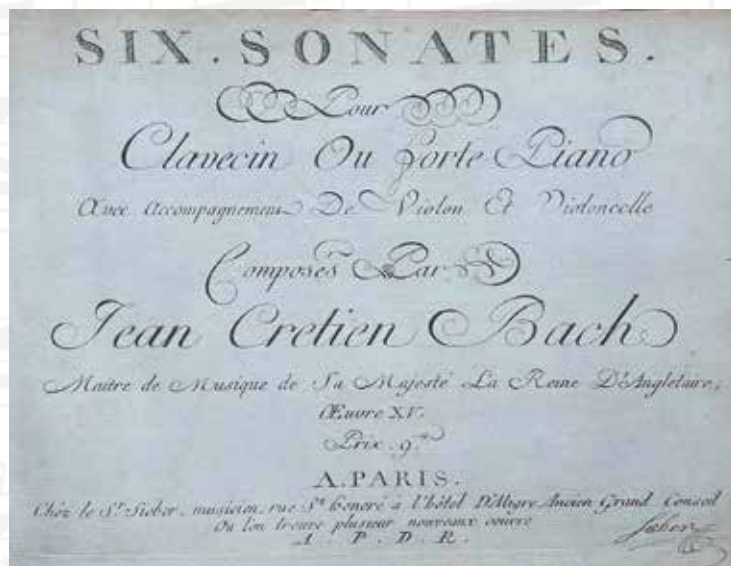 SIX. SONATES.
Pour
Clavecin Ou forte Piano
Avec Accompagnement De Violon Et Violoncelle
Composés Par
Jean Cretien Bach
Maitre de Musique de Sa Majesté La Reine D'Angletaire,
Œuvre XV.
Prix. 9.
A. PARIS.
Chéz le Sr. Sieber, musicien, rue St. honoré a l'hôtel D'Aligre Ancien Grand Conseil
Ou l'on trouve plusieur nouveaux œuvre
A. P. D. R.
Sieber